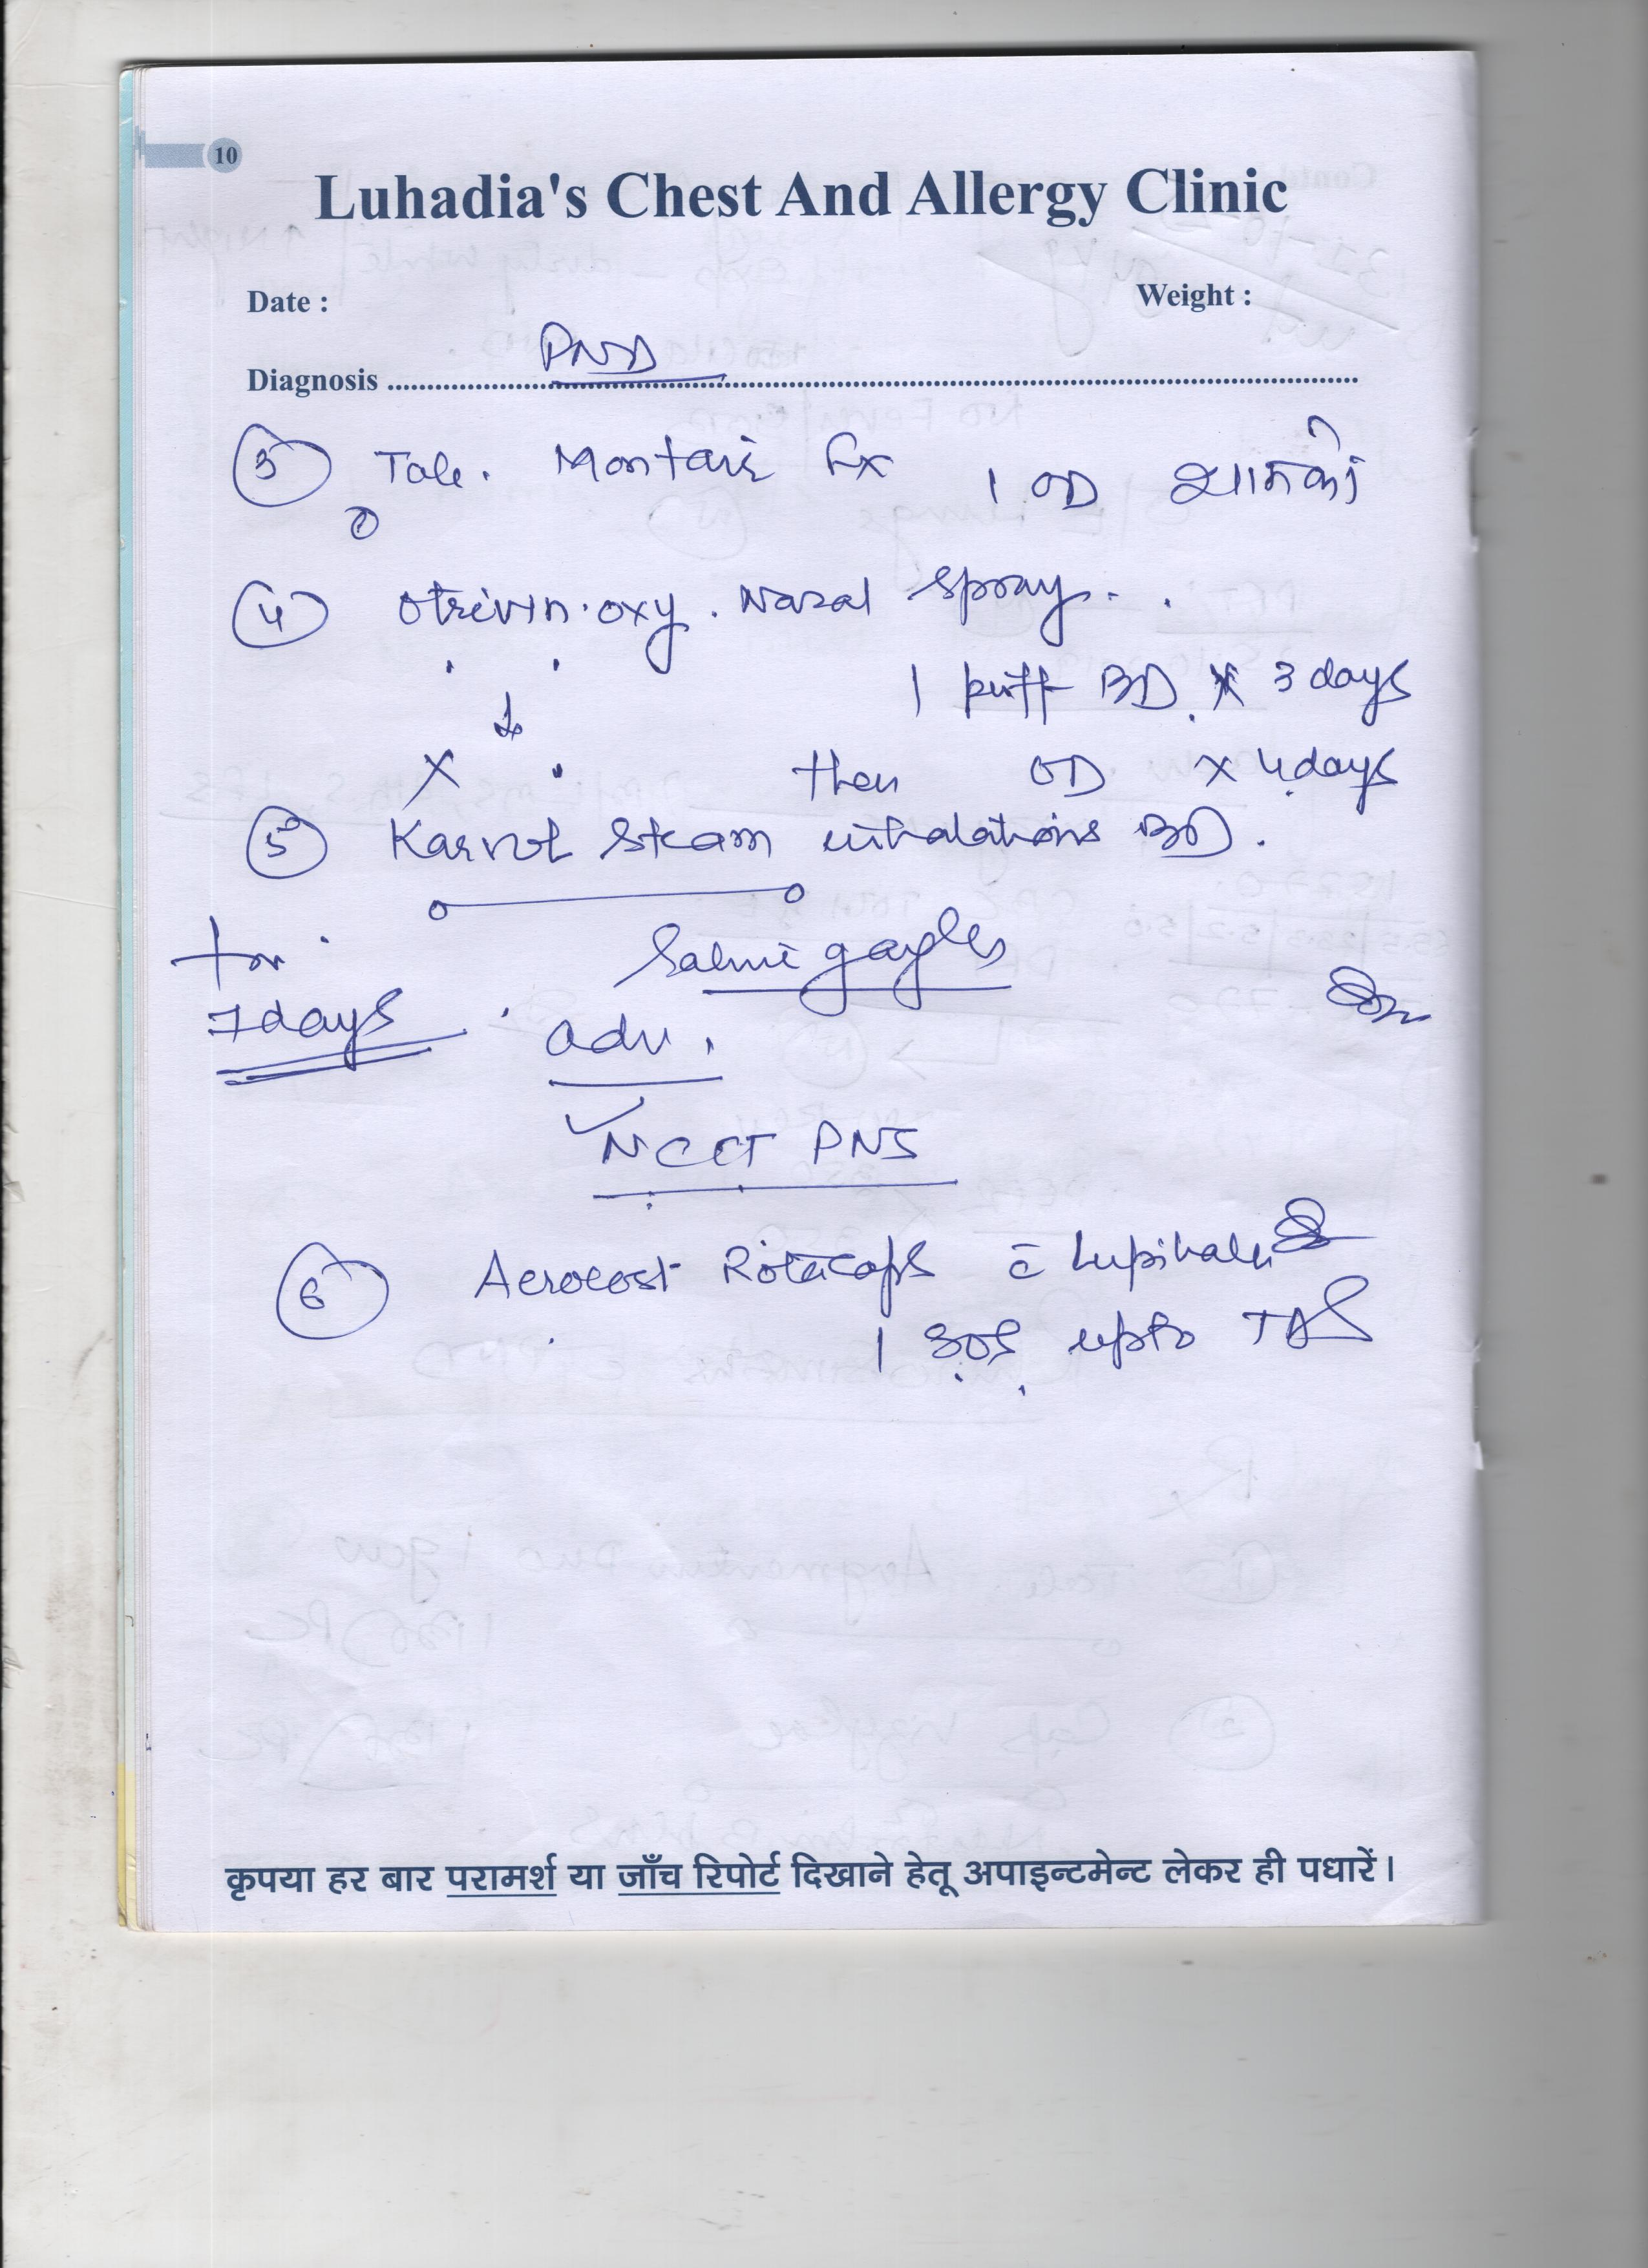 10
Luhadia's Chest And Allergy Clinic
Date : Weight :
Diagnosis PND
3 Tab. Montair Fx 1 OD शाम को
4 Otrivin oxy. Nasal spray
1 puff BD x 3 days
then OD x 4 days
5 Karvol Steam inhalations BD.
for Saline gargles
7 days
adv.
NCCT PNS
6 Aerocort Rotacaps c̄ Lupihaler
1 SOS upto TDS
कृपया हर बार परामर्श या जाँच रिपोर्ट दिखाने हेतू अपाइन्टमेन्ट लेकर ही पधारें।